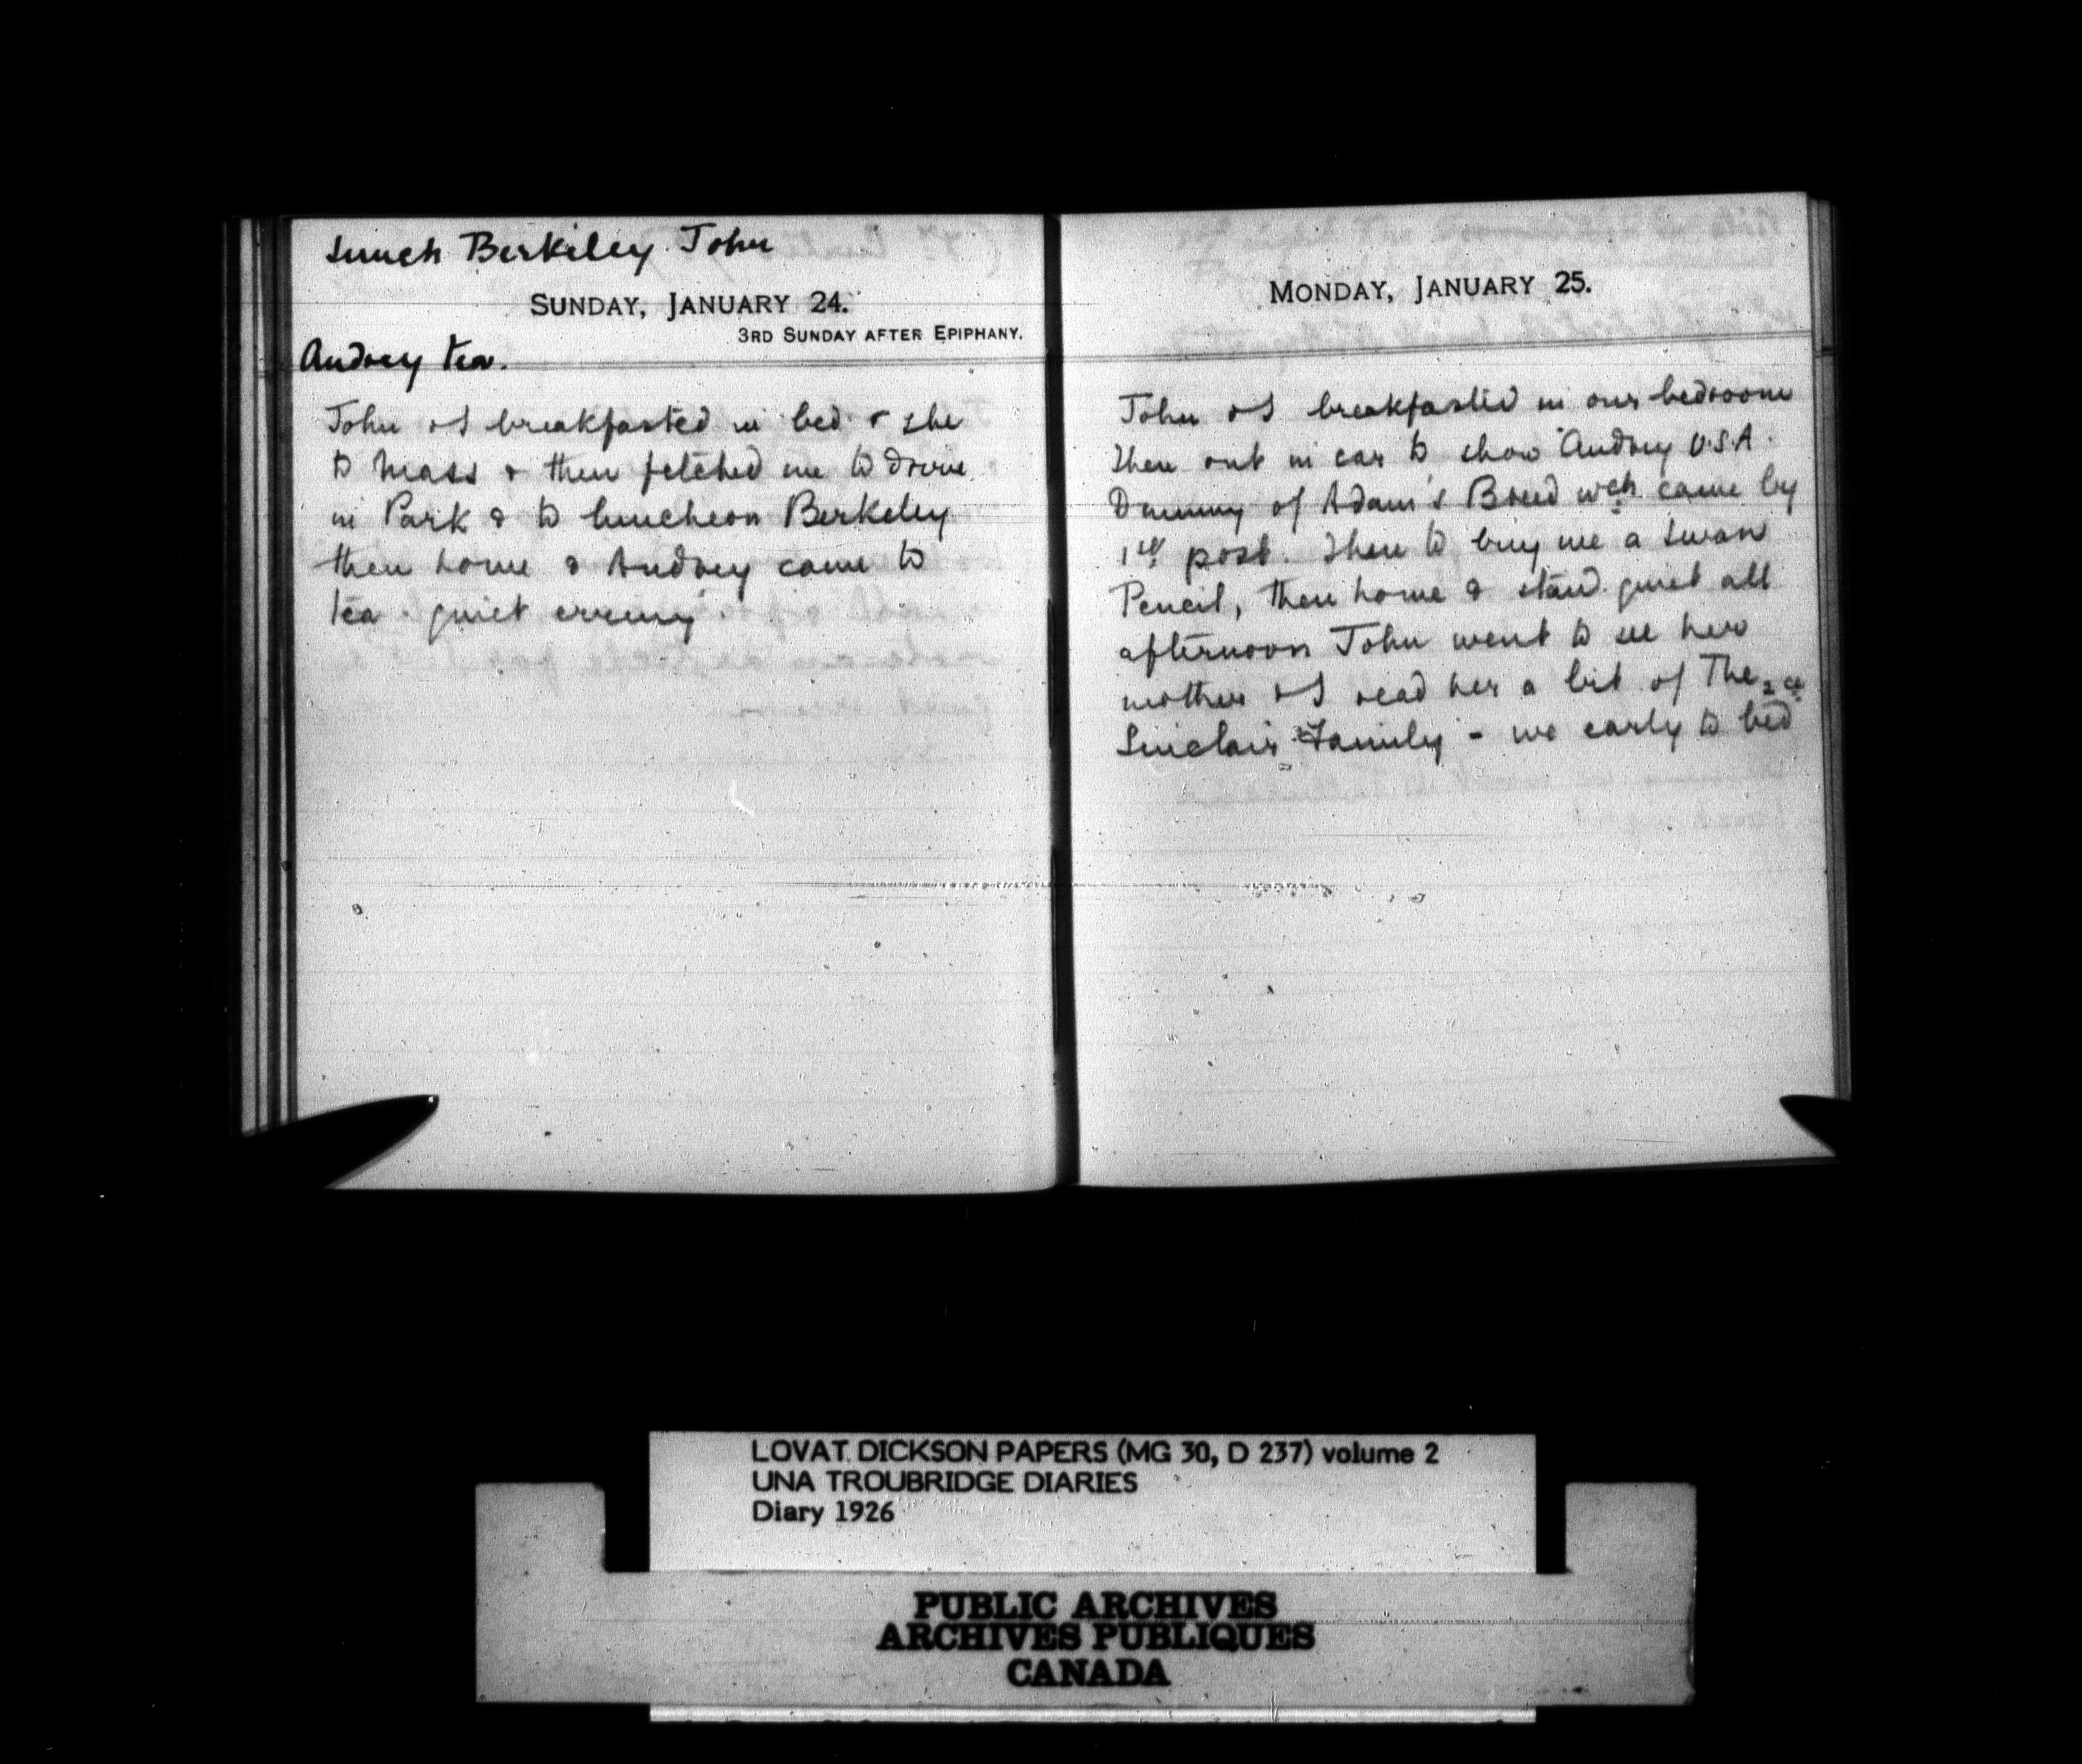 Lunch Berkeley John
SUNDAY, JANUARY 24.
3RD SUNDAY AFTER EPIPHANY.
Audrey tea.
John & I breakfasted in bed & she
to Mass & then fetched me to drive
in Park & to luncheon Berkeley
then home & Audrey came to
tea quiet evening
MONDAY, JANUARY 25.
John & I breakfasted in our bedroom
then out in car to show Audrey U.S.A.
Dummy of Adam's Breed wch came by
1st post. Then to buy me a Swan
Pencil, then home & staid quiet all
afternoon John went to see her
mother & I read her a bit of The
Sinclair Family - we early to bed
LOVAT DICKSON PAPERS (MG 30, D 237) volume 2
UNA TROUBRIDGE DIARIES
Diary 1926
PUBLIC ARCHIVES
ARCHIVES PUBLIQUES
CANADA